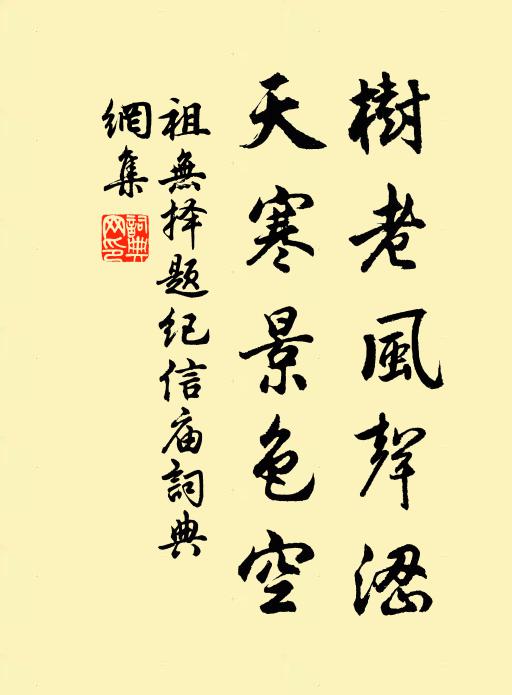 樹老風聲涩
天寒景色空
祖無择题纪信庙詞典
網集
詞典
网印